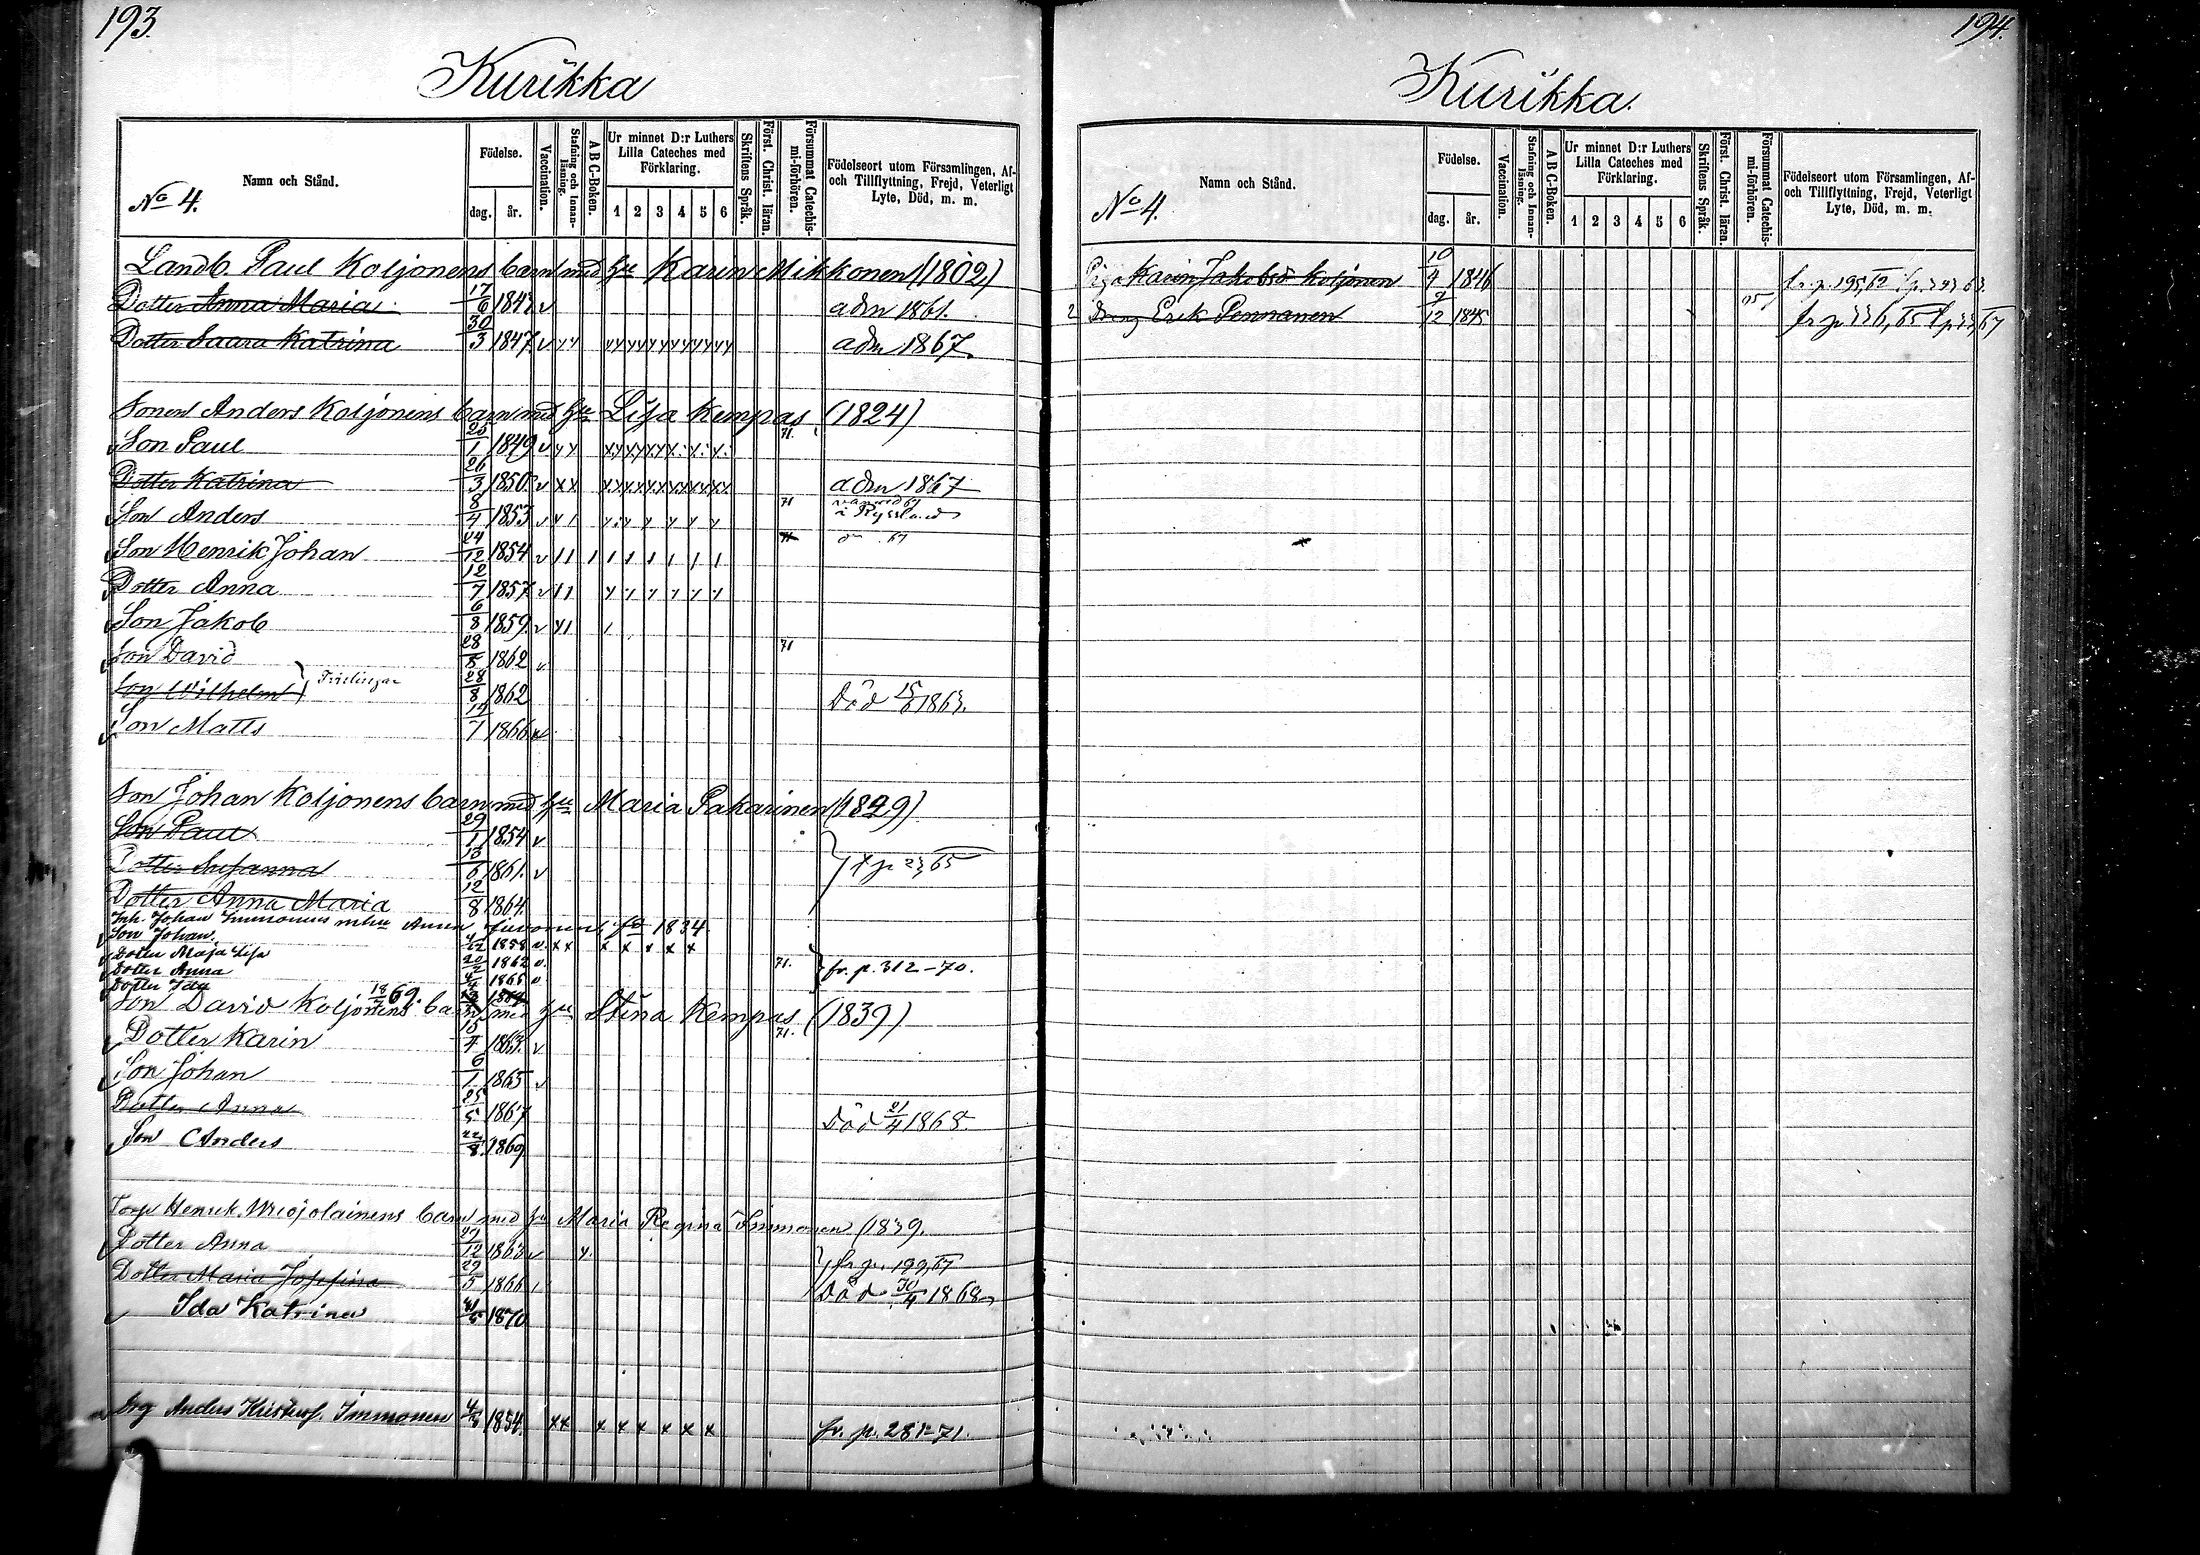 193.
Kurikka
No 4.
Namn och Stånd.
Födelse.
dag. år.
Vaccination.
Stafning och Innan-läsning.
A B C-Boken.
Ur minnet D:r Luthers Lilla Cateches med Förklaring.
1 2 3 4 5 6
Skriftens Språk.
Först. Christ. läran.
Försummat Catechis-mi-förhören.
Födelseort utom Församlingen, Af- och Tillflyttning, Frejd, Veterligt Lyte, Död, m. m.
Landb. Paul Koljonens barn med hu Karin Mikkonen (1802)
Dotter Anna Maria 17/6 184 v adm 1861.
Dotter Saara Katrina 30/3 1847 v adm 1867.
Sonen Anders Koljonens barn med hu Lisa Kempas (1824)
Son Paul 25/1 1849 v 71.
Dotter Katrina 26/3 1850 v x x adm 1867
Son Anders 8/4 1853 v 71 i Ryssland
Son Henrik Johan 24/12 1854 v 67
Dotter Anna 12/7 1857 v
Son Jakob 6/8 1859 v
Son David 28/8 1862 v 71
Son Wilhelm Tvillingar 28/8 1862 Död 1863.
Son Matts 14/7 1866 v
Son Johan Koljonens barn med hu Maria Pakarinen (1829)
Son Paul 29/1 1854 v
Dotter Susanna 13/6 1861. v 65
Dotter Anna Maria 12/8 1864.
Inh. Johan Immonens m hu Anna 1834
Son Johan. 1858 v. x x x x x x x
Dotter Maja Lisa 20/2 1862 v. 71. fr. p. 312-70.
Dotter Anna 1865 v
Dotter Ida 1869.
Son David Koljonens barn med hu Stina Kempas (1839)
Dotter Karin 15/4 1863. v 71.
Son Johan 6/1 1865 v
Dotter Anna 25/5 1867 Död 21/4 1868.
Son Anders 22/8 1869
Torp Henrik barn med hu Maria Regina Immonen (1839.
Dotter Anna 27/12 1863 v fr p. 199, 67
Dotter Maria Josefina 29/5 1866 Död 30/4 1868
Ida Katrina 1870
Drg Anders Kristof. Immonen 4/8 1854. x x x x x x x x fr. p. 281-71.
194.
Kurikka.
No 4.
Namn och Stånd.
Födelse.
dag. år.
Vaccination.
Stafning och Innan-läsning.
A B C-Boken.
Ur minnet D:r Luthers Lilla Cateches med Förklaring.
1 2 3 4 5 6
Skriftens Språk.
Först. Christ. läran.
Försummat Catechis-mi-förhören.
Födelseort utom Församlingen, Af- och Tillflyttning, Frejd, Veterligt Lyte, Död, m. m.
Piga Karin Jakobsd Koljonen 10/4 1846 fr. p. 195, 62
2 Dreng Erik Pennanen 9/12 1845 fr p